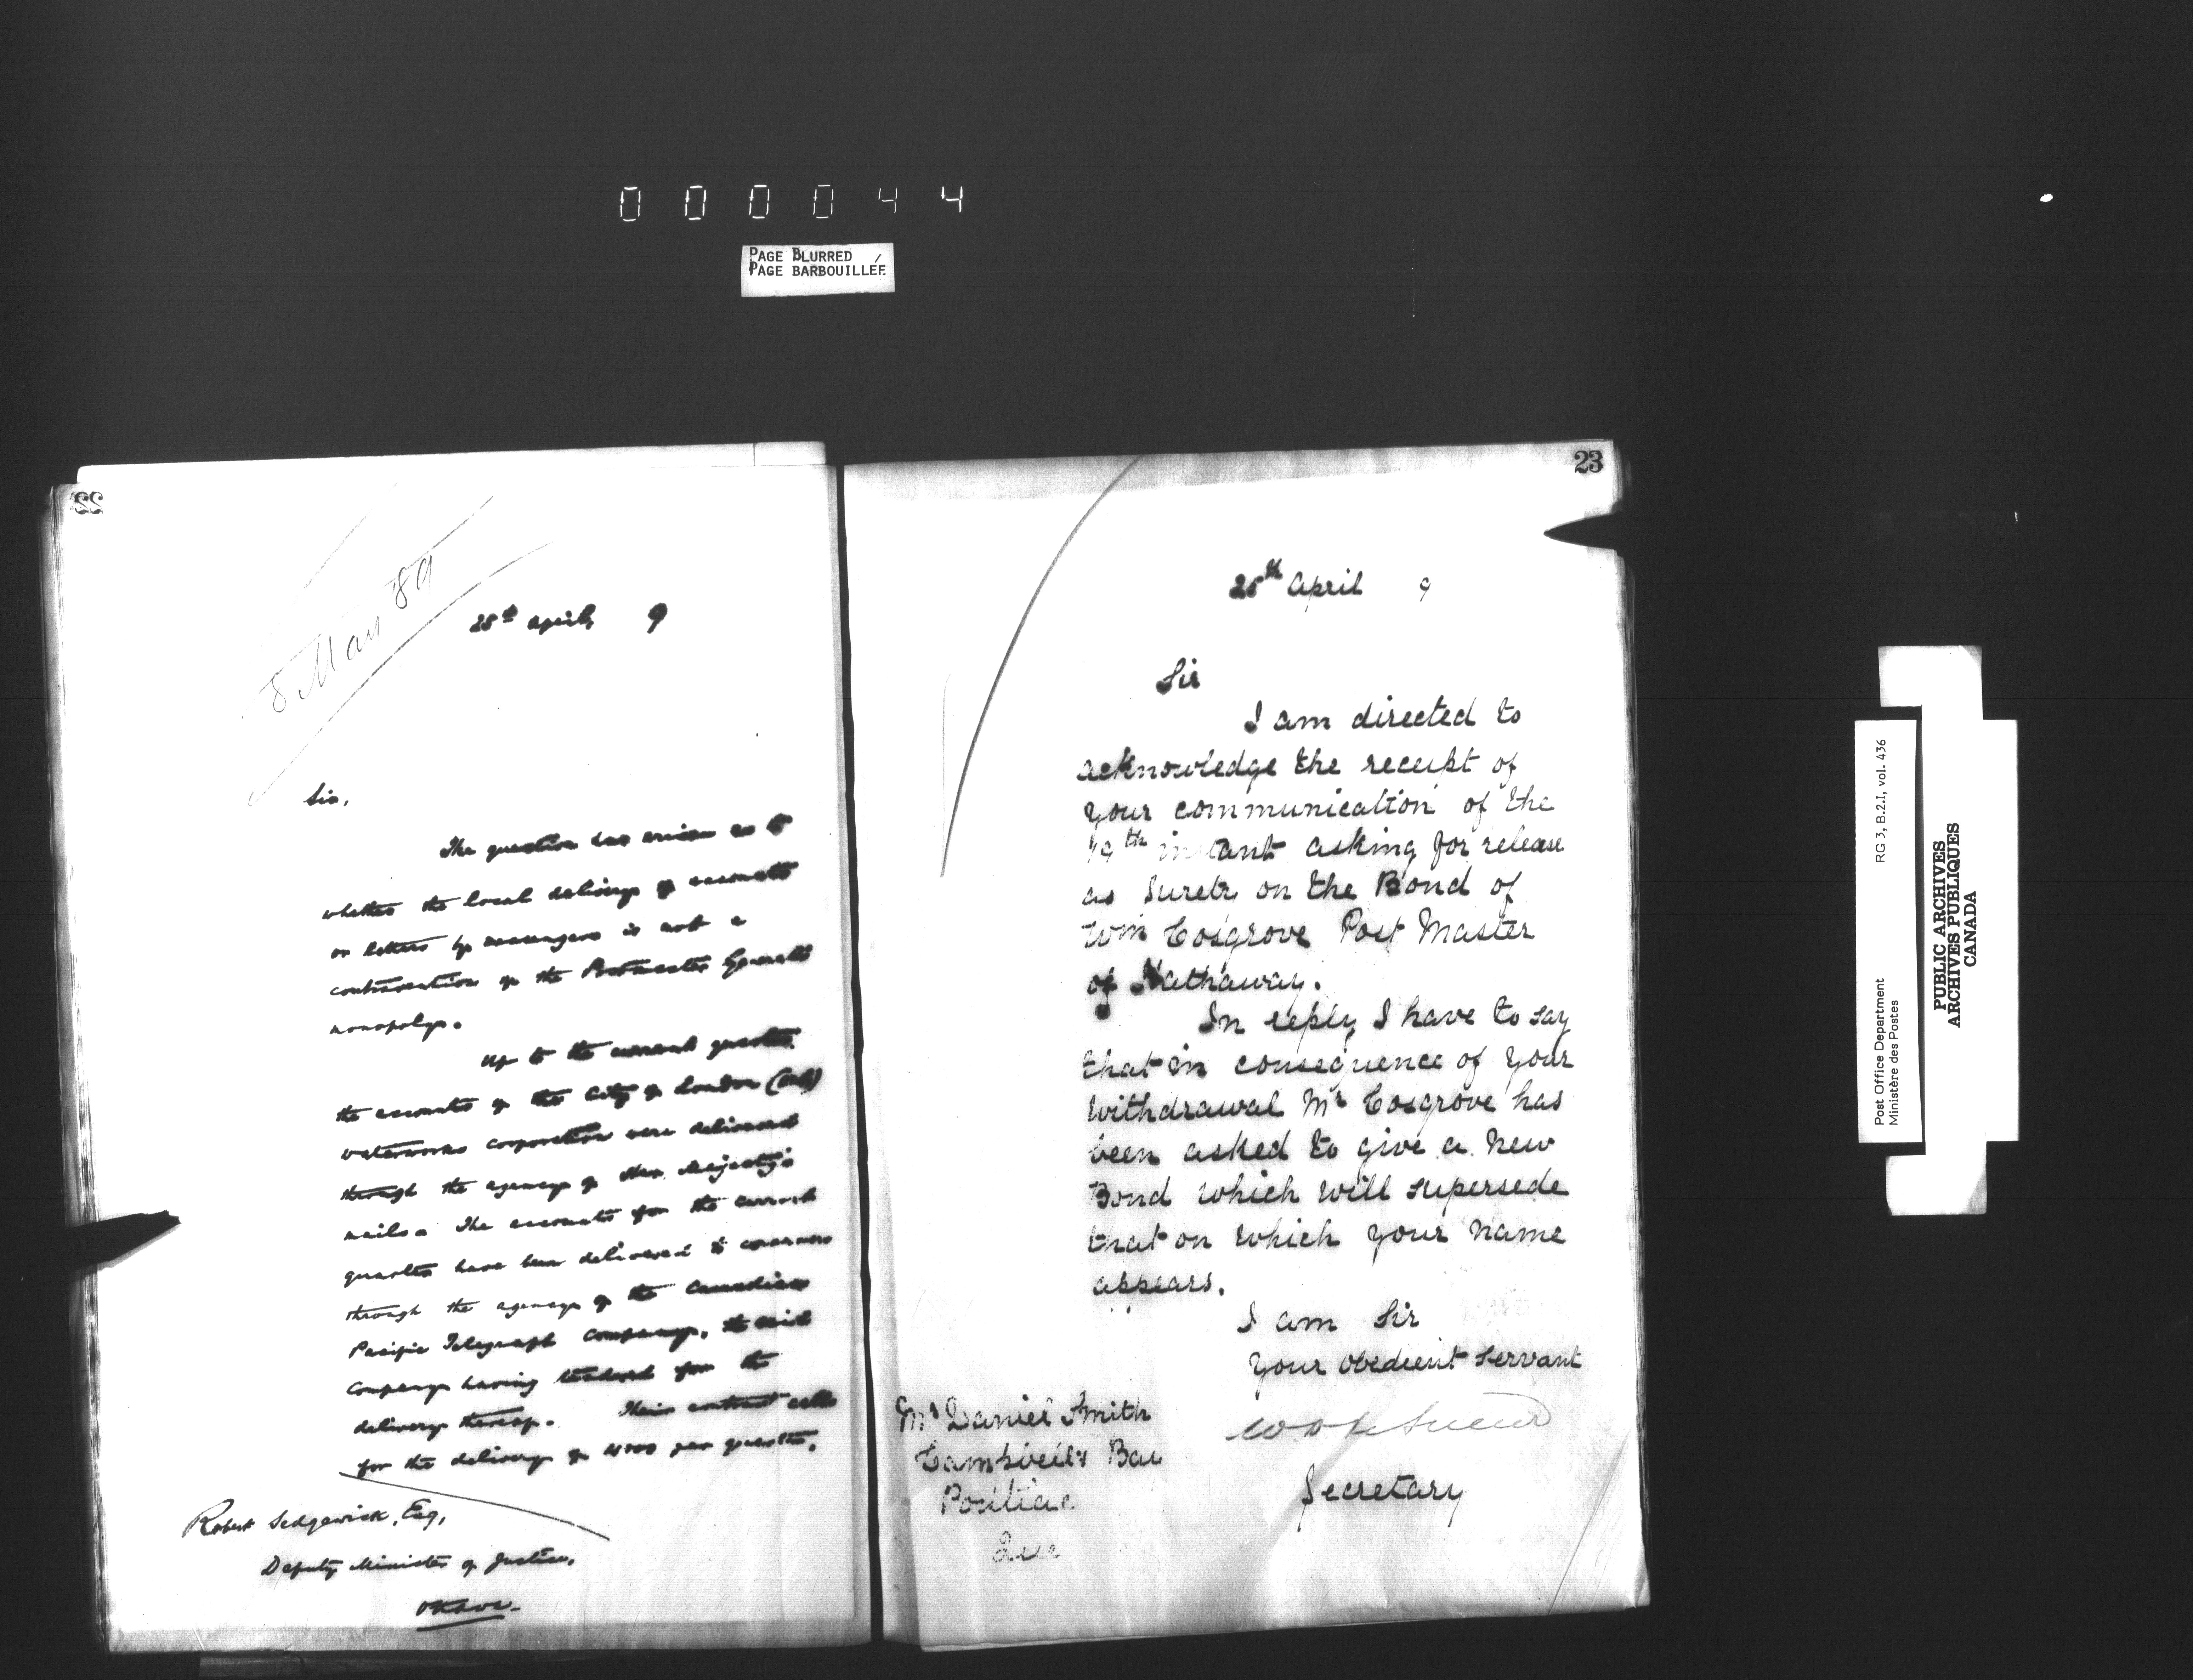 000044
PAGE BLURRED
PAGE BARBOUILLÉE
22
8 May 89
25th April, 9
Sir,
The question has arisen as to
whether the local delivery of accounts
or letters by messengers is not a
contravention of the Postmaster General's
monopoly.
Up to the current quarter,
the accounts of the City of London (Ont)
waterworks corporation were delivered
through the agency of Her Majesty's
mails. The accounts for the current
quarter have been delivered to consumers
through the agency of the Canadian
Pacific Telegraph Company, the said
Company having tendered for the
delivery thereof. Their contract calls
for the delivery of 4000 per quarter.
Robert Sedgewick, Esq,
Deputy Minister of Justice,
Ottawa.
23
25th April 9
Sir
I am directed to
acknowledge the receipt of
your communication of the
19th instant asking for release
as Surety on the Bond of
Wm Cosgrove Post Master
of Hathaway.
In reply I have to say
that in consequence of your
withdrawal Mr Cosgrove has
been asked to give a new
Bond which will supersede
that on which your name
appears.
I am Sir
Your obedient servant
Secretary
Mr Daniel Smith
Campbell's Bay
Pontiac
Que
Post Office Department
Ministère des Postes
RG 3, B.2.I, vol. 436
PUBLIC ARCHIVES
ARCHIVES PUBLIQUES
CANADA